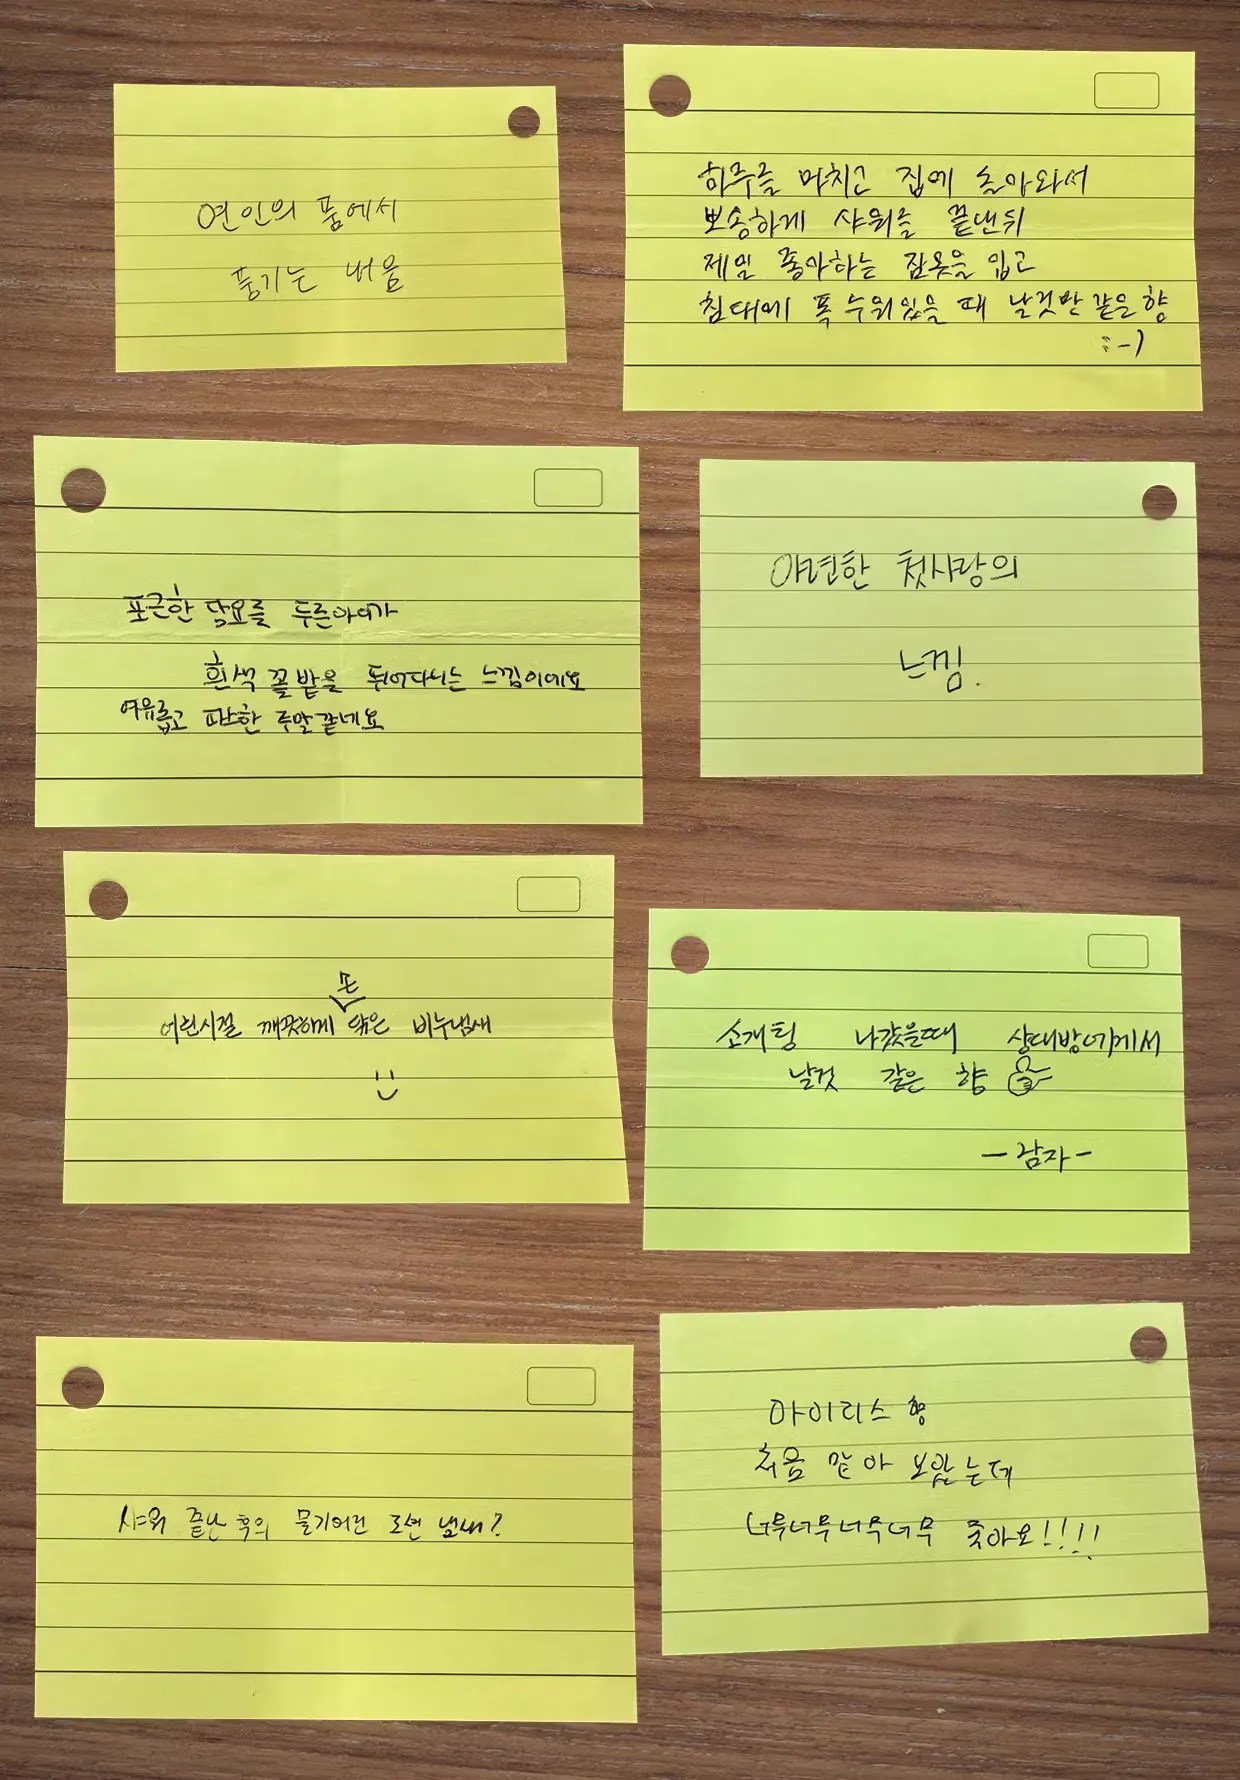 연인의 품에서
풍기는 내음
하루를 마치고 집에 돌아와서
뽀송하게 샤워를 끝낸뒤
제일 좋아하는 잠옷을 입고
침대에 폭 누워있을 때 날것만 같은 향
:-)
포근한 담요를 두른아이가
흰색 꽃밭을 뛰어다니는 느낌이에요
여유롭고 따스한 주말같네요
아련한 첫사랑의
느낌.
손
어린시절 깨끗하게 닦은 비누냄새
소개팅 나갔을때 상대방에게서
날것 같은 향
- 감자 -
샤워 끝난 후의 물기어린 로션 냄새?
아이리스 향
처음 맡아 보았는데
너무너무너무너무 좋아요!!!!